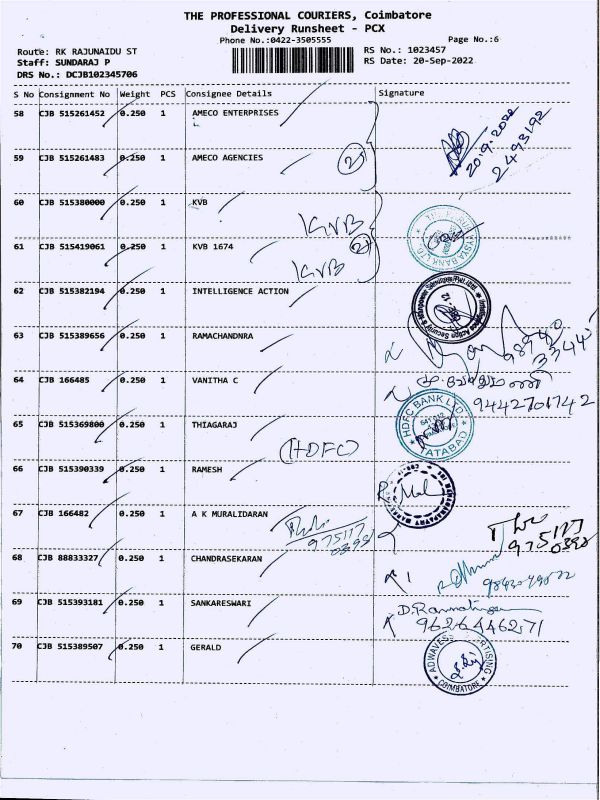 THE PROFESSIONAL COURIERS, Coimbatore
Delivery Runsheet - PCX
Phone No.:0422-3505555
Page No.:6
Route: RK RAJUNAIDU ST
RS No.: 1023457
Staff: SUNDARAJ P
RS Date: 20-Sep-2022
DRS No.: DCJB102345706
S No Consignment No Weight PCS Consignee Details Signature
58 CJB 515261452 0.250 1 AMECO ENTERPRISES
20.9.2022
2493192
59 CJB 515261483 0.250 1 AMECO AGENCIES
60 CJB 515380000 0.250 1 KVB
KVB
61 CJB 515419061 0.250 1 KVB 1674
KVB
62 CJB 515382194 0.250 1 INTELLIGENCE ACTION
63 CJB 515389656 0.250 1 RAMACHANDNRA
98940
33445
64 CJB 166485 0.250 1 VANITHA C
9442701742
65 CJB 515369800 0.250 1 THIAGARAJ
HDFC BANK LTD
TATABAD
(HDFC)
66 CJB 515390339 0.250 1 RAMESH
67 CJB 166482 0.250 1 A K MURALIDARAN
975117
0398
975117
0398
68 CJB 88833327 0.250 1 CHANDRASEKARAN
69 CJB 515393181 0.250 1 SANKARESWARI
9626446271
70 CJB 515389507 0.250 1 GERALD
ADWAVES ADVERTISING
COIMBATORE